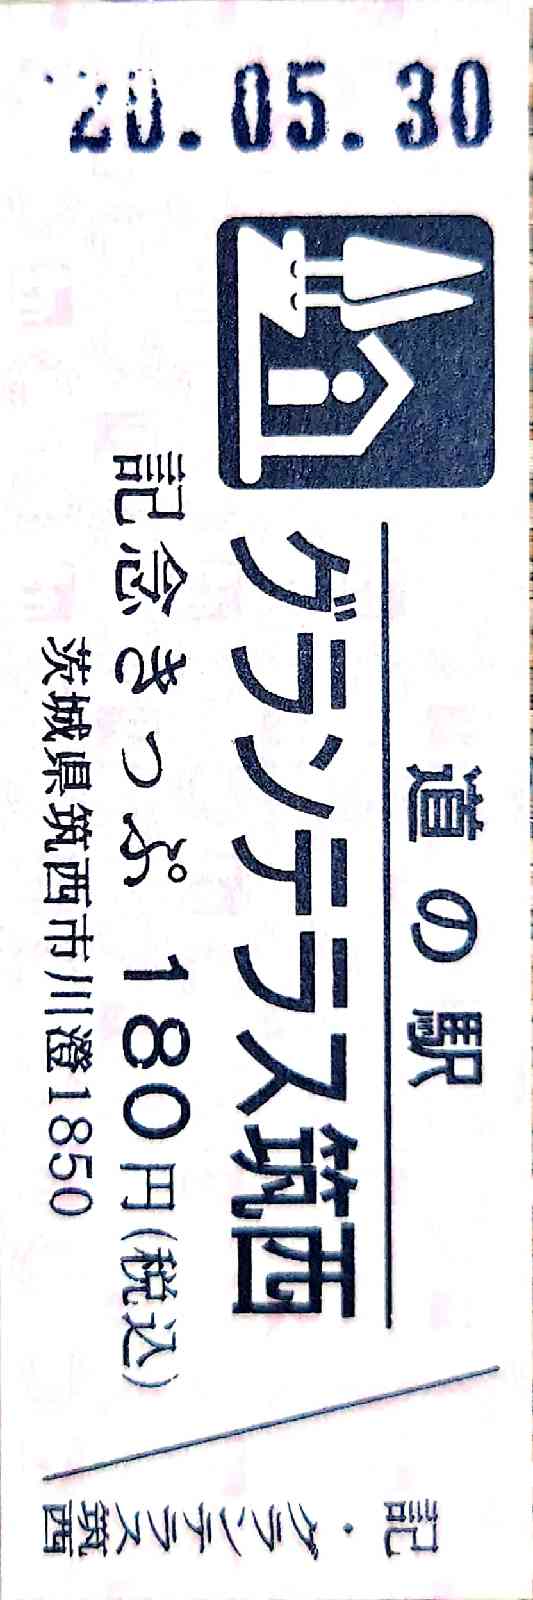 20.05.30
道の駅
グランテラス筑西
記念きっぷ 180円(税込)
茨城県筑西市川澄1850
記・グランテラス筑西